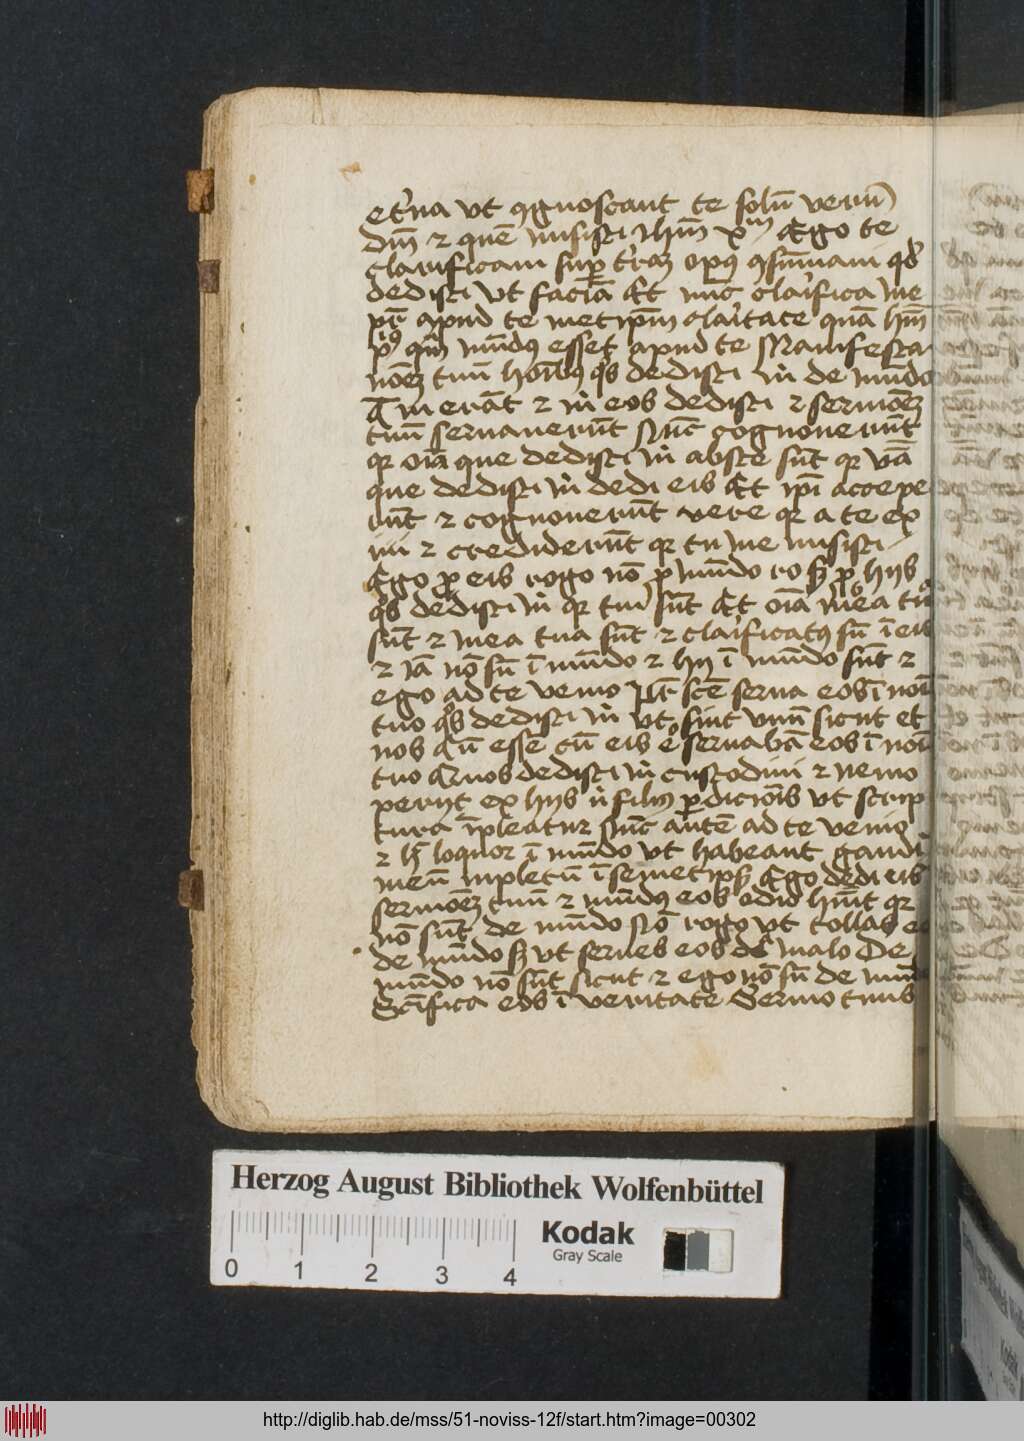 et'na vt ꝯgnoscant te solū verū
dm̄ ⁊ quē misisti ihm̄ xpm Ego te
clarificaui suꝑ t'raꝫ opꝰ ꝯsūmaui qd'
dedisti vt faciā Et nūc clarifica me
pr̄ apud te metip̄m clar'tate quā hui
pꝰ qm̄ mūdꝰ esset apud te Manifesta
noēꝫ tuū hoībꝰ qs dedisti m de mūdo
Tui erāt ⁊ m eos dedisti ⁊ sermoēꝫ
tuū seruauerūt Nūc cognouerūt
qꝛ oīa que dedisti m abs te sūt qꝛ vā
que dedisti m dedi eis Et ip̄i accepe
rūt ⁊ cognouerūt vere qꝛ a te ex
iui ⁊ crediderūt qꝛ tu me misisti
Ego ꝓ eis rogo nō ꝓ mūdo ro sꝫ ꝓ hijs
qs dedisti m qꝛ tui sūt Et oīa mea tua
sūt ⁊ mea tua sūt ⁊ clarificatꝰ sū ī eis
⁊ iā nō sū ī mūdo ⁊ hij ī mūdo sūt ⁊
ego ad te venio Pr̄ scē serua eos ī noīe
tuo qs dedisti m vt sint vnū sicut et
nos Cū essē cū eis eͦ seruabā eos ī noīe
tuo Quos dedisti m custodiui ⁊ nemo
perijt ex hijs n filiꝰ ꝑdicioīs vt scrip
tura īpleatur Nūc autē ad te venio
⁊ h̄ loquor ī mūdo vt habeant gaudi
meū inpletū ī semetipsꝫ Ego dedi eis
sermoēꝫ tuū ⁊ mūdꝰ eos odio huit qꝛ
nō sūt de mūdo Nō rogo vt tollas eos
de mūdo sꝫ vt serues eos de malo De
mūdo nō sūt sicut ⁊ ego nō sū de mūdo
Scīfica eos ī veritate Sermo tuus
Herzog August Bibliothek Wolfenbüttel
0 1 2 3 4
Kodak
Gray Scale
http://diglib.hab.de/mss/51-noviss-12f/start.htm?image=00302